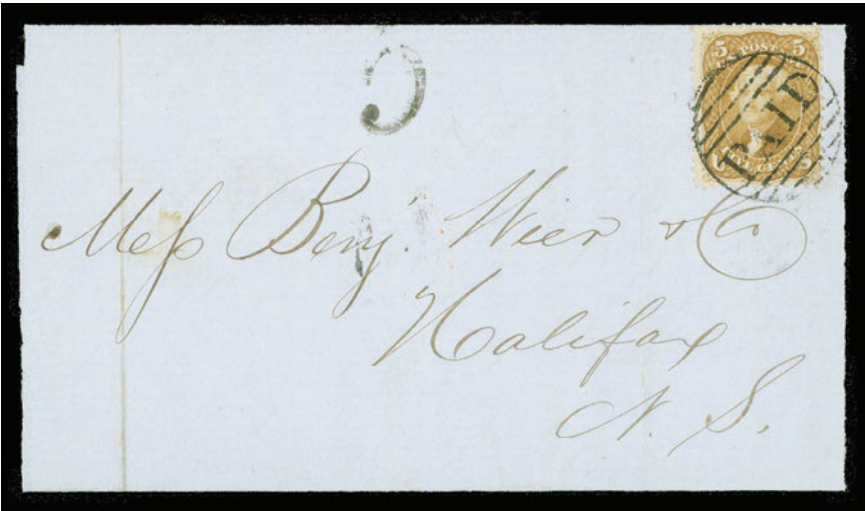 5
5 U.S. POSTAGE 5
PAID
5 FIVE CENTS 5
Mess Benj. Wier & Co
Halifax
N. S.